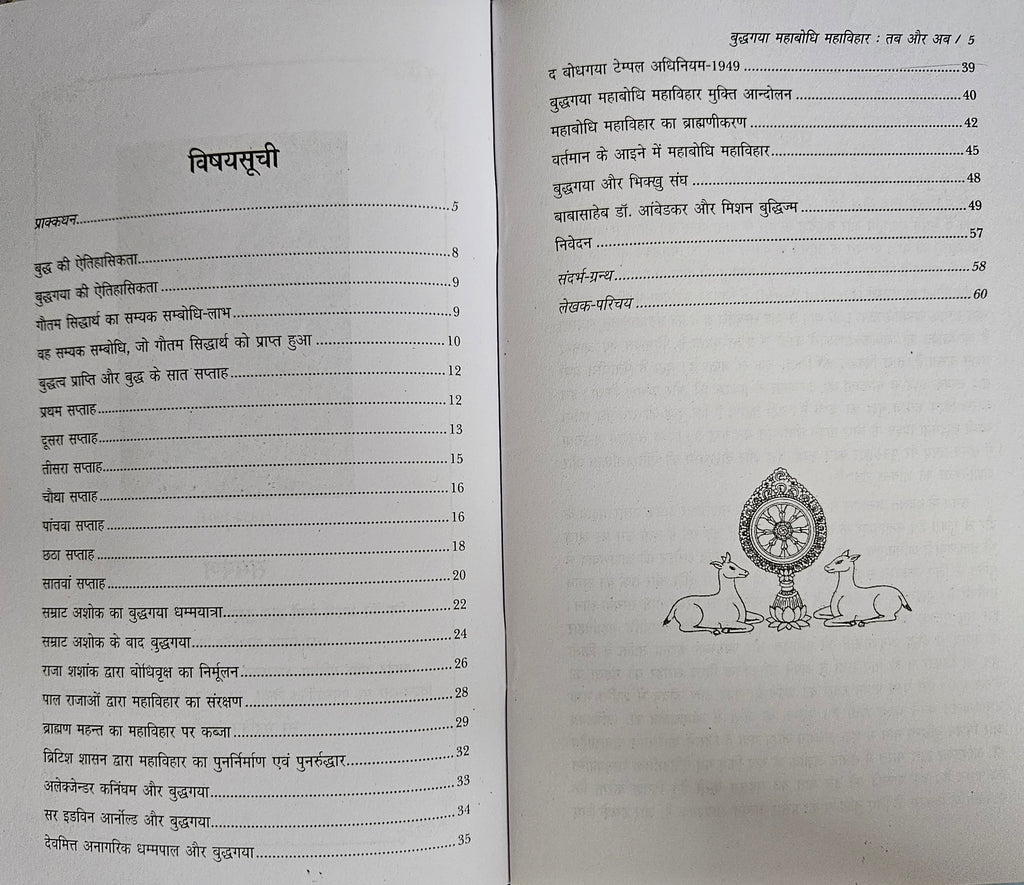 विषयसूची
प्राक्कथन....................5
बुद्ध की ऐतिहासिकता....................8
बुद्धगया की ऐतिहासिकता....................9
गौतम सिद्धार्थ का सम्यक सम्बोधि-लाभ....................9
वह सम्यक सम्बोधि, जो गौतम सिद्धार्थ को प्राप्त हुआ....................10
बुद्धत्व प्राप्ति और बुद्ध के सात सप्ताह....................12
प्रथम सप्ताह....................12
दूसरा सप्ताह....................13
तीसरा सप्ताह....................15
चौथा सप्ताह....................16
पांचवा सप्ताह....................16
छठा सप्ताह....................18
सातवां सप्ताह....................20
सम्राट अशोक का बुद्धगया धम्मयात्रा....................22
सम्राट अशोक के बाद बुद्धगया....................24
राजा शशांक द्वारा बोधिवृक्ष का निर्मूलन....................26
पाल राजाओं द्वारा महाविहार का संरक्षण....................28
ब्राह्मण महन्त का महाविहार पर कब्जा....................29
ब्रिटिश शासन द्वारा महाविहार का पुनर्निर्माण एवं पुनर्रुद्धार....................32
अलेक्जेन्डर कनिंघम और बुद्धगया....................33
सर इडविन आर्नोल्ड और बुद्धगया....................34
देवमित्त अनागरिक धम्मपाल और बुद्धगया....................35
बुद्धगया महाबोधि महाविहार : तब और अब / 5
द बोधगया टेम्पल अधिनियम-1949....................39
बुद्धगया महाबोधि महाविहार मुक्ति आन्दोलन....................40
महाबोधि महाविहार का ब्राह्मणीकरण....................42
वर्तमान के आइने में महाबोधि महाविहार....................45
बुद्धगया और भिक्खु संघ....................48
बाबासाहेब डॉ. आंबेडकर और मिशन बुद्धिज्म....................49
निवेदन....................57
संदर्भ-ग्रन्थ....................58
लेखक-परिचय....................60